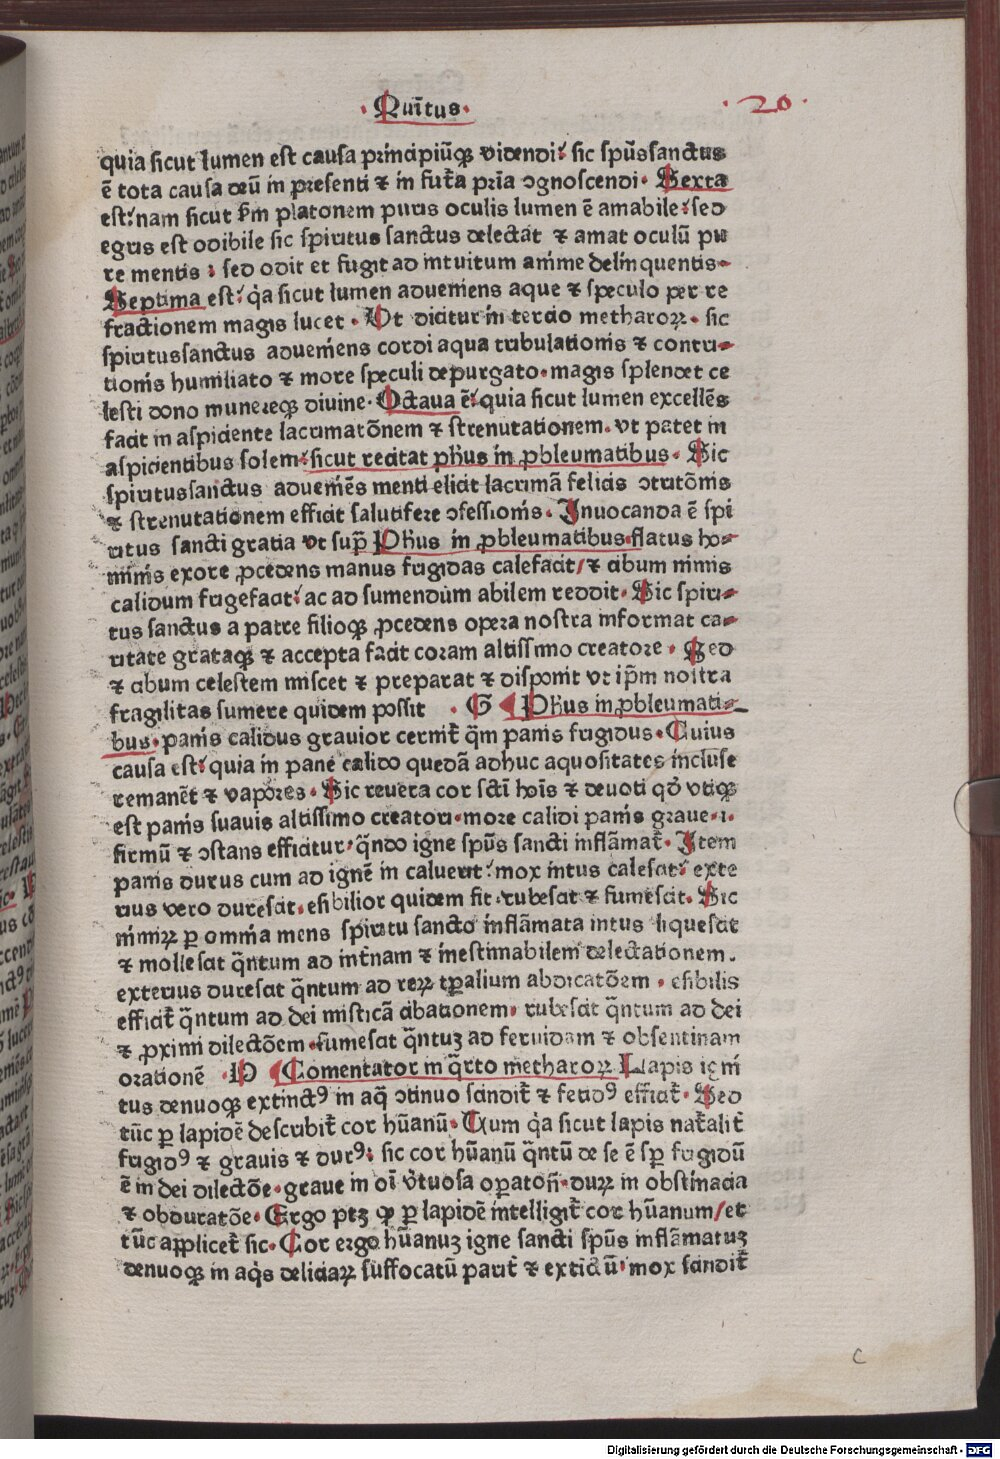 Quītus
20
quia sicut lumen est causa principiūqꝫ videndi: sic spūssanctus
ē tota causa deū in presenti ⁊ in fut̄a pr̄ia ↄgnoscendi. Sexta
est: nam sicut ẜm platonem puris oculis lumen ē amabile: sed
egris est odibile sic spiritus sanctus delectat ⁊ amat oculū pu
re mentis: sed odit et fugit ad intuitum anīme delinquentis.
Septima est: qͥa sicut lumen adueniens aque ⁊ speculo per re
fractionem magis lucet. Ut dicitur in tercio metharoꝝ. sic
spiritussanctus adueniens cordi aqua tribulationis ⁊ contri-
tionis humiliato ⁊ more speculi depurgato. magis splendet ce
lesti dono munereqꝫ diuine. Octaua ē: quia sicut lumen excellēs
facit in aspiciente lacrimatōnem ⁊ strenutationem. vt patet in
aspicientibus solem: sicut recitat pħus in ꝓbleumatibus. Sic
spiritussanctus adueniēs menti elicit lacrimā felicis ↄtritōnis
⁊ strenutationem efficit salutifere ↄfessionis. Inuocanda ē spi
ritus sancti gratia vt supͣ Pħus in ꝓbleumatibus. flatus ho-
minis exore ꝓcedens manus frigidas calefacit/ ⁊ cibum nimis
calidum frigefacit: ac ad sumendum abilem reddit. Sic spiri-
tus sanctus a patre filioqꝫ ꝓcedens opera nostra informat ca-
ritate grataqꝫ ⁊ accepta facit coram altissimo creatore. Sed
⁊ cibum celestem miscet ⁊ preparat ⁊ disponit vt ip̄m nostra
fragilitas sumere quidem possit . G Pħus in ꝓbleumati-
bus. panis calidus grauior cernit̄ q̄m panis frigidus. Cuius
causa est: quia in pane calido quedā adhuc aquositates incluse
remanēt ⁊ vapores. Sic reuera cor sct̄i hoīs ⁊ deuoti qd̄ vtiqꝫ
est panis suauis altissimo creatori. more calidi panis graue .i.
firmū ⁊ ↄstans efficitur/ qn̄do igne spūs sancti inflāmat̄. Item
panis durus cum ad ignē in caluerit: mox intus calesat: exte
rius vero duresat. esibilior quidem fit. rubesat ⁊ fumesat. Sic
nimiꝝ ꝑ omnia mens spiritu sancto inflāmata intus liquesat
⁊ mollesat q̄ntum ad int̄nam ⁊ inestimabilem delectationem.
exterius duresat q̄ntum ad reꝝ tꝑalium abdicatōem. esibilis
efficit̄ q̄ntum ad dei misticā cibationem. rubesat q̄ntum ad dei
⁊ ꝓximi dilectōem. fumesat q̄ntuꝫ ad feruidam ⁊ obsentinam
orationē . D Comentator in q̄rto metharoꝝ Lapis igni
tus denuoqꝫ extinctꝰ in aq̄ ↄtinuo scindit̄ ⁊ fetidꝰ efficit̄. Sed
tūc ꝑ lapidē describit̄ cor hūanū. Cum qͥa sicut lapis nat̄alit̄
frigidꝰ ⁊ grauis ⁊ durꝰ: sic cor hūanū q̄ntū de se ē sꝑ frigidū
ē in dei dilectōe. graue in oī v̓tuosa oꝑatoñ. duꝝ in obstinacia
⁊ obduratōe. Ergo ptꝫ ꝙ ꝑ lapidē intelligit̄ cor hūanum/ et
tūc applicet̄ sic. Cor ergo hūanuꝫ igne sancti spūs inflāmatuꝫ
denuoqꝫ in aqͥs deliciaꝝ suffocatū parit̄ ⁊ extictū: mox scindit̄
c
Digitalisierung gefördert durch die Deutsche Forschungsgemeinschaft - DFG